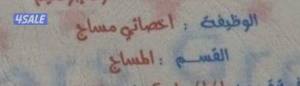 4SALE
الوظيفة : اخصائي مساج
القسم : المساج